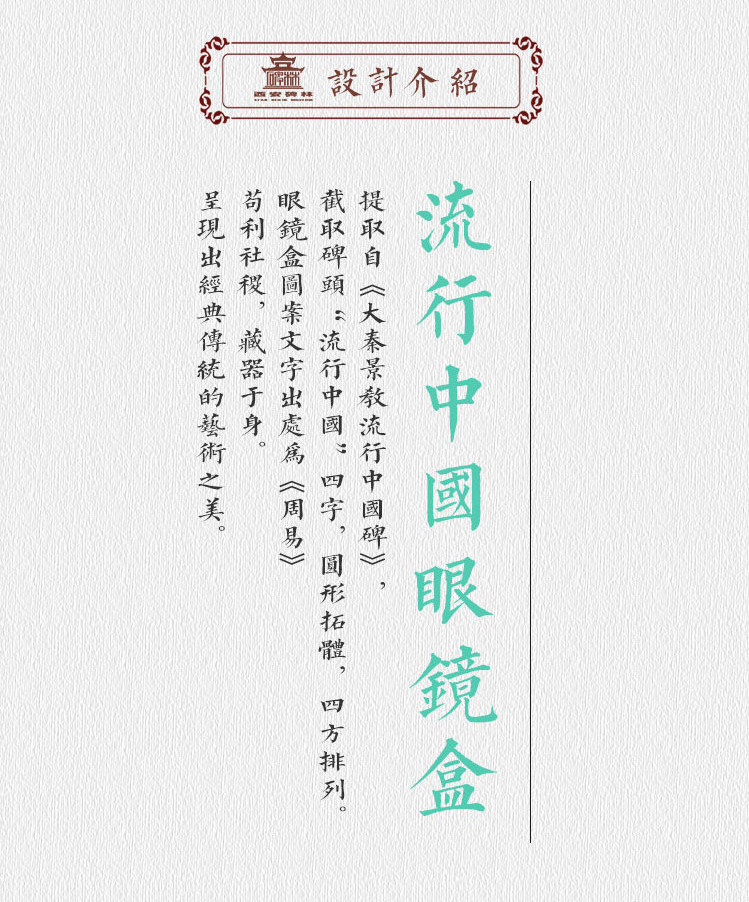 西安碑林
設計介紹
流行中國眼鏡盒
提取自《大秦景教流行中國碑》，
截取碑頭“流行中國”四字，圓形拓體，四方排列。
眼鏡盒圖案文字出處爲《周易》
苟利社稷，藏器于身。
呈現出經典傳統的藝術之美。